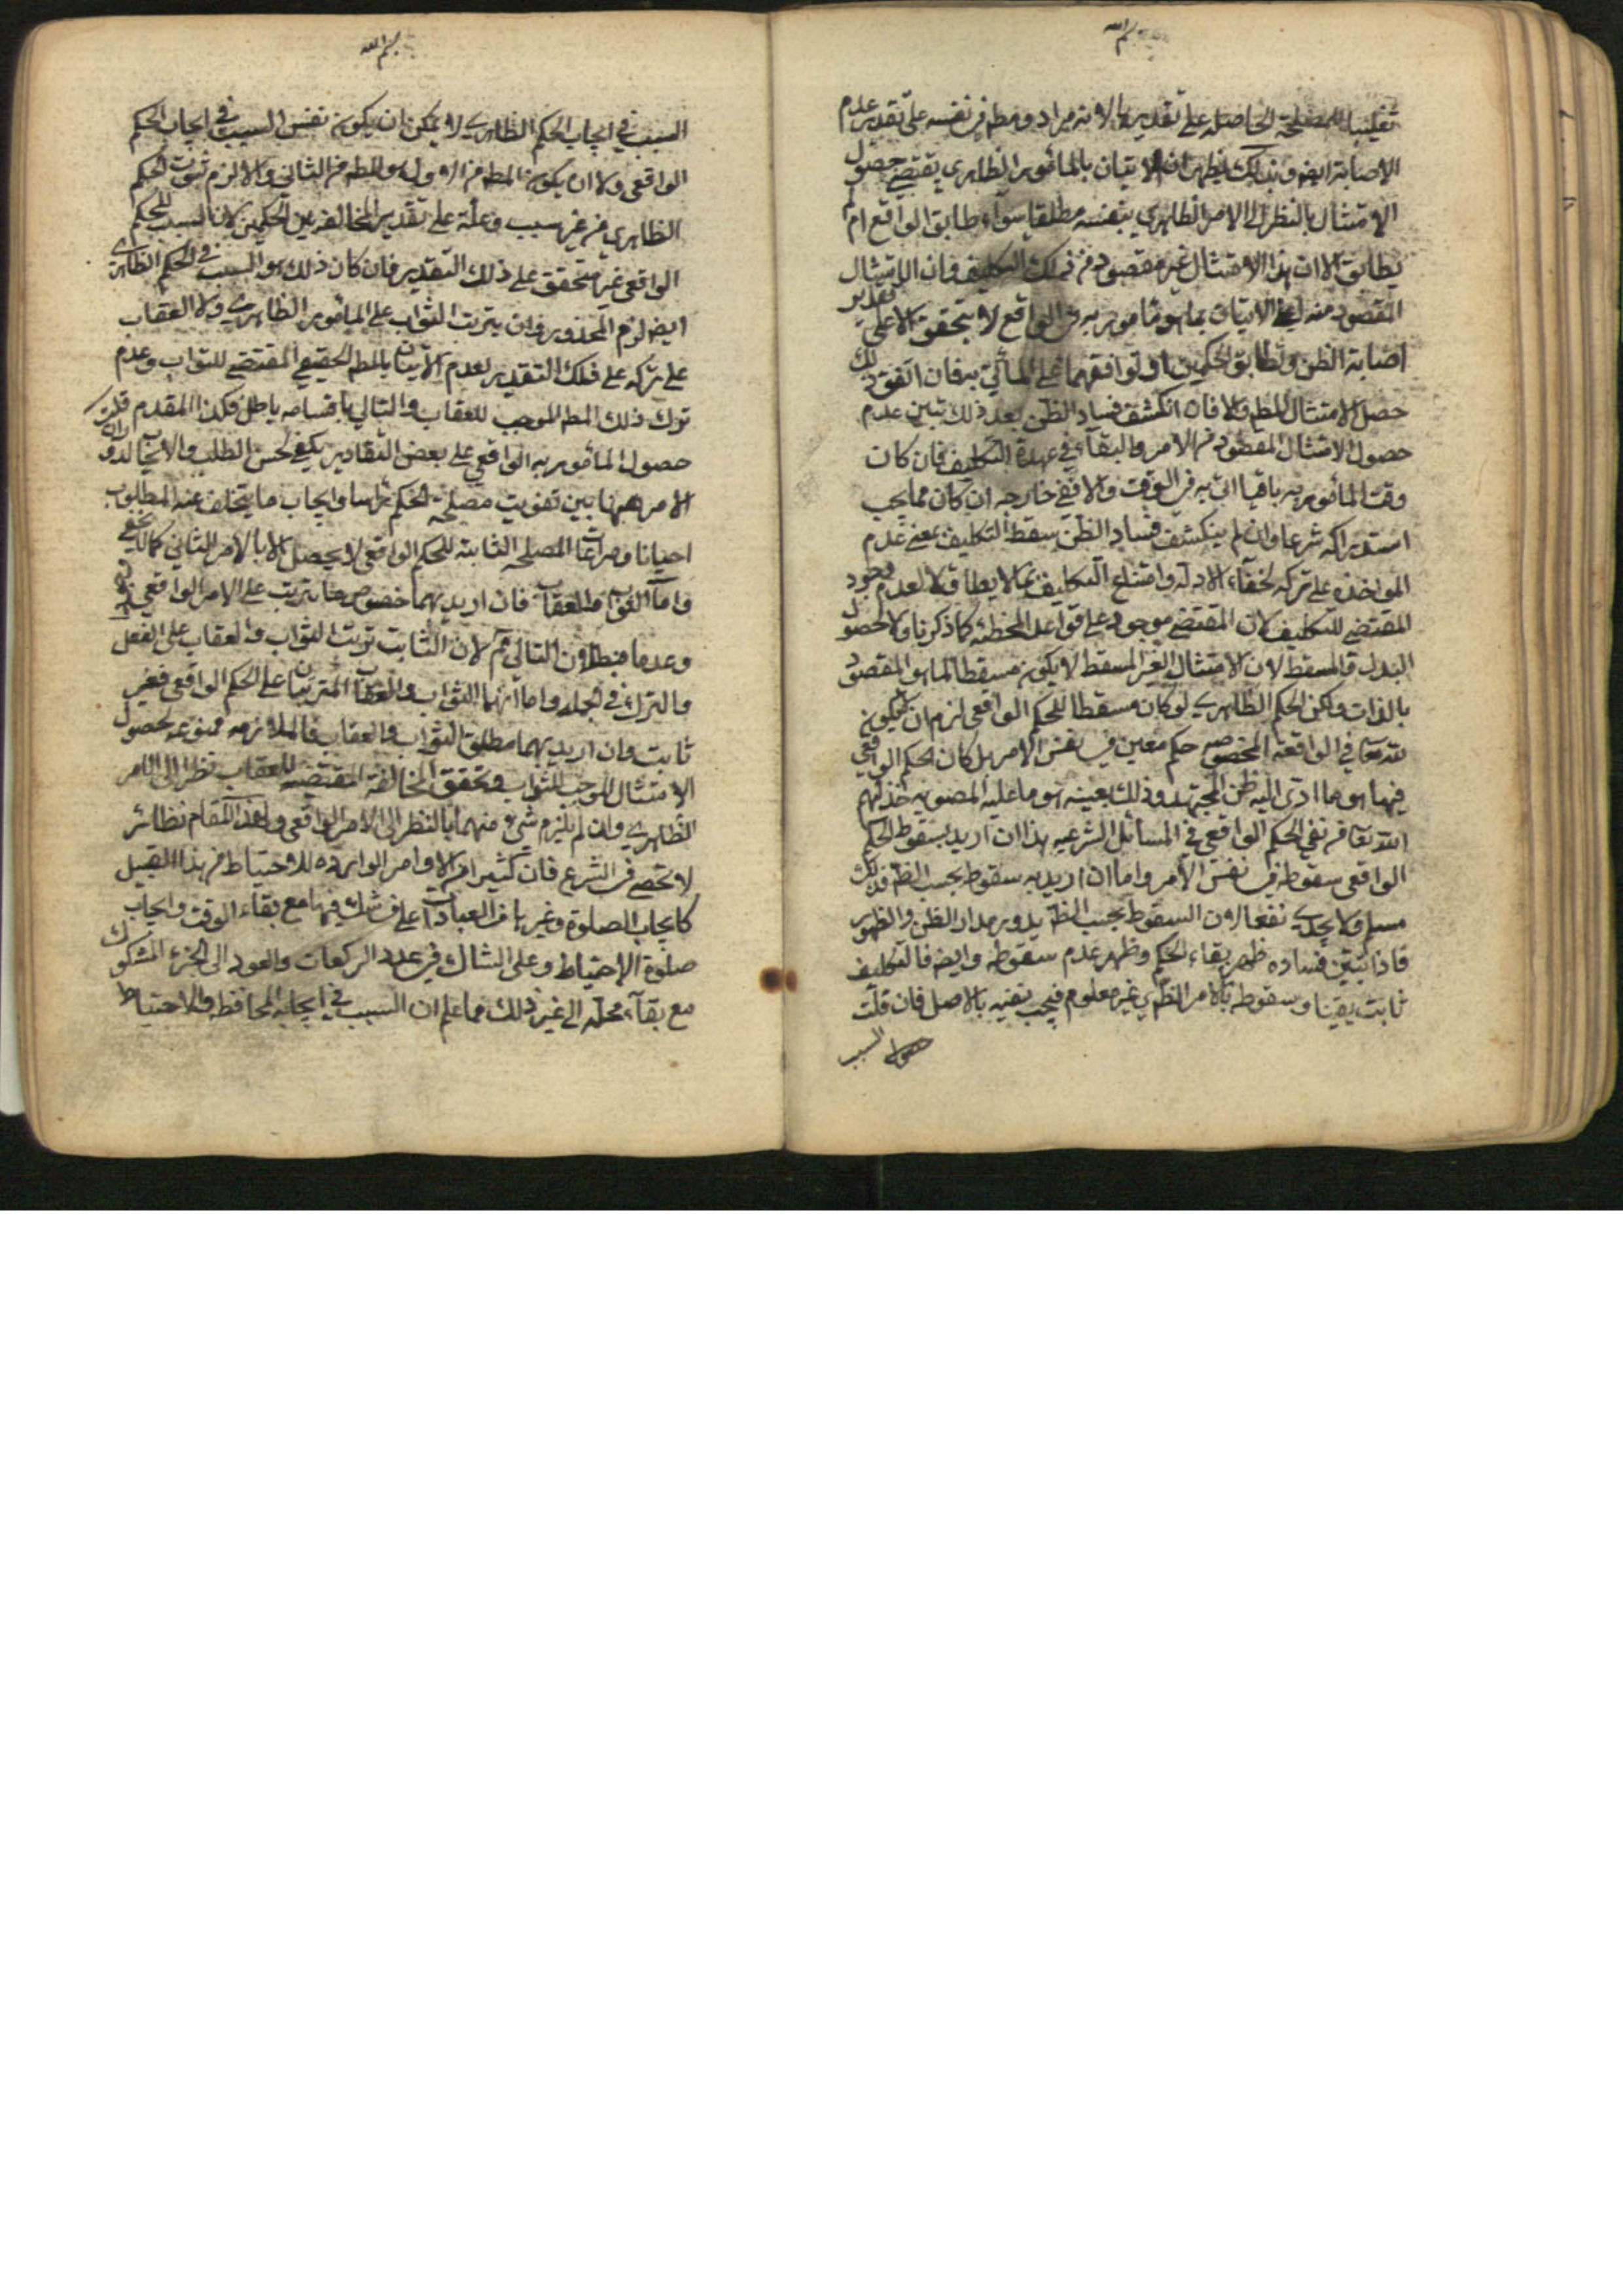 بسم الله
تغليبا للمصلحة الحاصلة على تقدير الاصابة مراد ومط في نفسه على تقدير عدم
الاصابة ايضا وبذلك يظهر ان الاتيان بالمأمور الظاهري يقتضي حصول
الامتثال بالنظر الى الامر الظاهري بنفسه مطلقا سواء طابق الواقع ام لم
يطابق الا ان هذا الامتثال غير مقصود من ذلك التكليف وان الامتثال
المقصود منه اعني الاتيان بما هو مأمور به في الواقع لا يتحقق الا على تقدير
اصابة الظن وتطابق الحكمين او توافقهما في المأتي به فان اتفق ذلك
حصل الامتثال للمط والا فان انكشف فساد الظن بعد ذلك تبين عدم
حصول الامتثال المقصود من الامر والبقاء في عهدة التكليف فان كان
وقت المأمور به باقيا اتى به في الوقت والا ففي خارجه ان كان مما يجب
استدراكه شرعا وان لم ينكشف فساد الظن سقط التكليف بمعنى عدم
المواخذة على تركه لخفاء الادلة وامتناع التكليف بما لا يطاق لا لعدم وجود
المقتضي للتكليف لان المقتضي موجود على قواعد المخطئة كما ذكرنا ولا لحصول
البدل والمسقط لان الامتثال الغير المسقط لا يكون مسقطا لما هو المقصود
بالذات ولكن الحكم الظاهري لو كان مسقطا للحكم الواقعي لزم ان لا يكون
لله تعا في الواقعة المخصوصه حكم معين في نفس الامر بل كان الحكم الواقعي
فيها هو ما ادى اليه ظن المجتهد وذلك بعينه هو ما عليه المصوبه خذلهم
الله تعا من نفي الحكم الواقعي في المسائل الشرعيه هذا ان اريد بسقوط الحكم
الواقعي سقوطه في نفس الامر واما ان اريد به سقوطه بحسب الظ فذلك
مسلم ولا يجدي نفعا لان السقوط بحسب الظ يدور مدار الظن والظهور
فاذا تبين فساده ظهر بقاء الحكم وظهر عدم سقوطه وايضا فالتكليف
ثابت يقينا وسقوطه بالامر الظهري غير معلوم فيجب نفيه بالاصل فان قلت
السبب
بسم الله
السبب في ايجاب الحكم الظاهري لا يمكن ان يكون نفس السبب في ايجاب الحكم
الواقعي ولا ان يكون المط من الاول هو المط من الثاني والا لزم ثبوت الحكم
الظاهري من غير سبب وعلة على تقدير المخالفة بين الحكمين لان السبب للحكم
الواقعي غير متحقق على ذلك التقدير فان كان ذلك هو السبب في الحكم الظاهري
ايضا لزم المحذور وان يترتب الثواب على المأمور الظاهري ولا العقاب
على تركه على ذلك التقدير لعدم الاتيان بالمط الحقيقي المقتضي للثواب وعدم
ترك ذلك المط الموجب للعقاب والتالي باقسامه باطل فكذا المقدم قلت
حصول المأمور به الواقعي على بعض التقادير يكفي لحسن الطلب والايجاب لدوران
الامر ههنا بين تفويت مصلحة الحكم راسا وايجاب ما يتخلف عنه المطلوب
احيانا ومراعات المصلحة الثابتة للحكم الواقعي لا يحصل الا بالامر الثاني كما لا يخفى
واما الثواب والعقاب فان اريد بهما خصوص ما يترتب على الامر الواقعي
وعدمها فبطلان التالي مم لان الثابت ترتب الثواب والعقاب على الفعل
والترك في الجملة واما انهما الثواب والعقاب المترتبان على الحكم الواقعي فغير
ثابت وان اريد بهما مطلق الثواب والعقاب فالملازمه ممنوعه لحصول
الامتثال الموجب للثواب وتحقق المخالفة المقتضية للعقاب نظرا الى الامر
الظاهري وان لم يلزم شيء منهما بالنظر الى الامر الواقعي ولهذا المقام نظائر
لا تحصى في الشرع فان كثيرا من الاوامر الواردة للاحتياط من هذا القبيل
كايجاب الصلوة وغيرها من العبادات على من شك فيها مع بقاء الوقت وايجاب
صلوة الاحتياط وعلى الشاك في عدد الركعات والعود الى الجزء المشكوك
مع بقاء محله الى غير ذلك مما علم ان السبب في ايجابه المحافظة والاحتياط